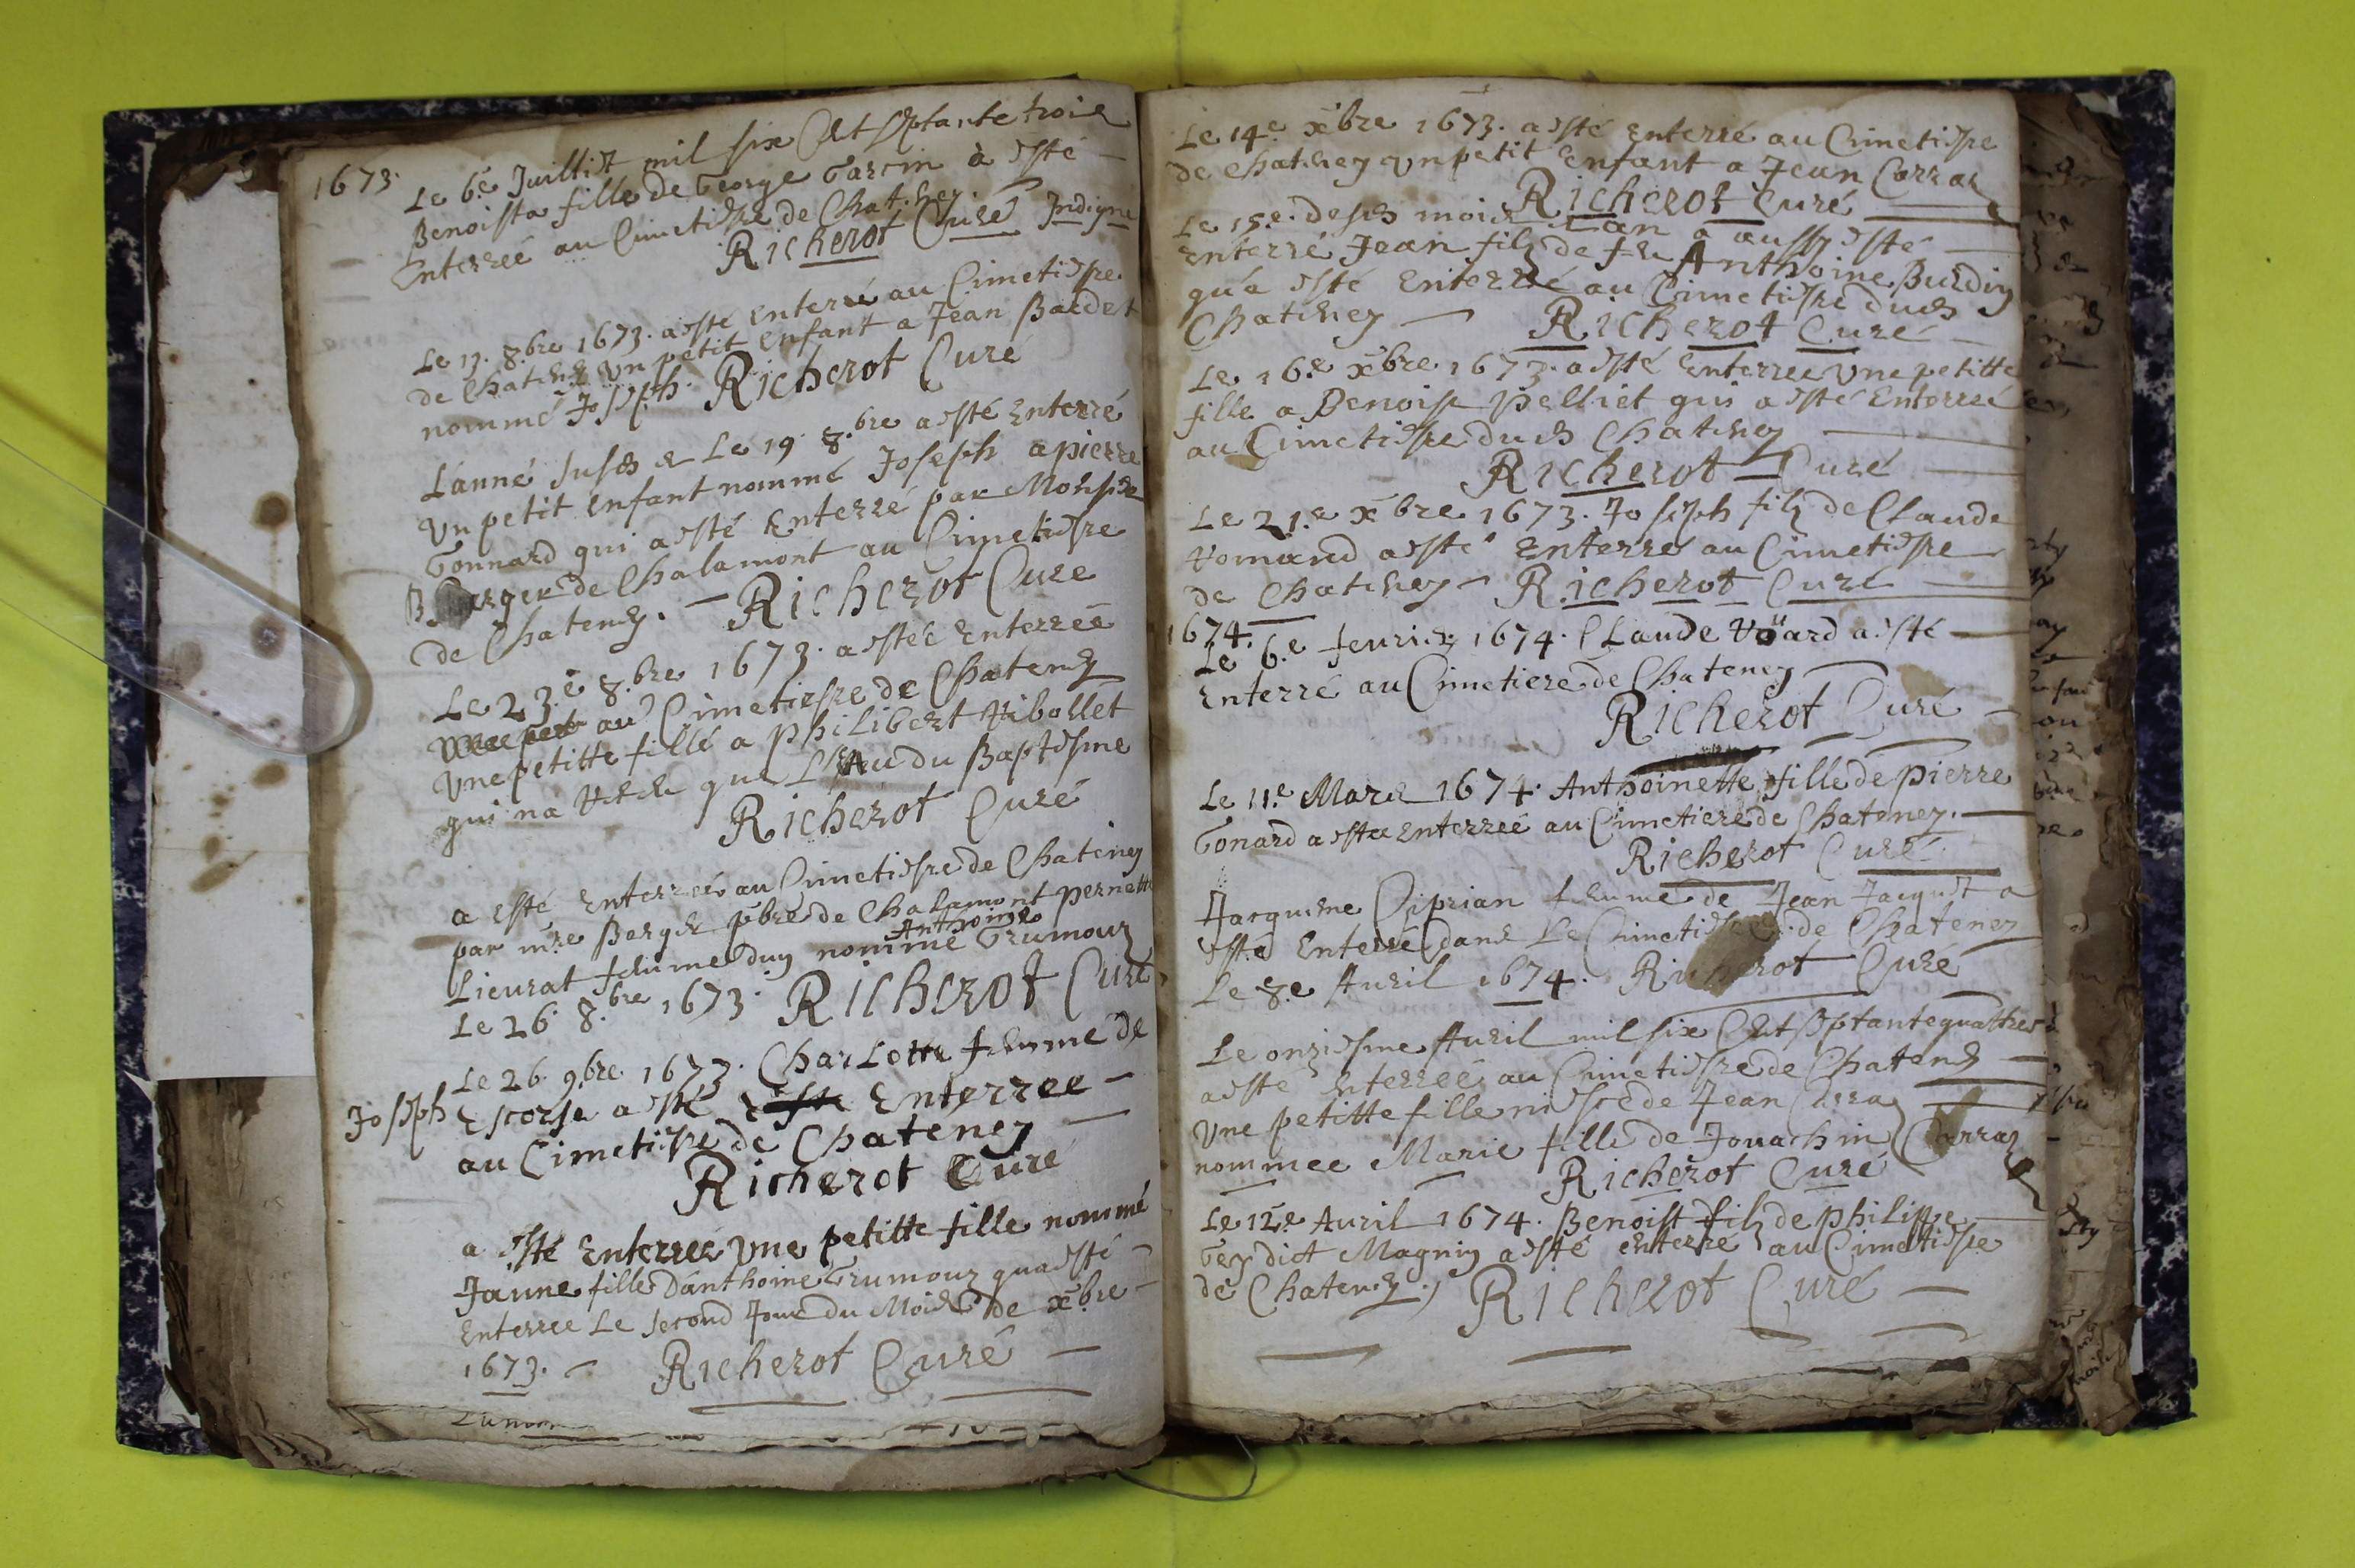 1673.
Le 6.e Juilliet mil six Cent septante trois
Benoista fille de George Garcin à esté
Enterreé au Cimetiesre de Chat.ney.
Richerot Curé Indigne
Le 19. 8.bre 1673. a esté Enterré au Cimetiesre
de Chateney un petit Enfant a Jean Bardet
nommé Joseph. Richerot Curé
L'anné susd & Le 19. 8.bre a esté Enterré
Un petit Enfant nommé Joseph a pierre
Gonnard qui a esté Enterré par Monsier
Berger de Chalamont au Cimetiesre
de Chateney. Richerot Curé
Le 23.e 8.bre 1673. a esteé Enterreé
au Cimetiesre de Chateney
Une petitte fille a Philibert Vibollet
qui na que L'Eau du Baptesme
Richerot Curé
a Esté Enterreé au Cimetiesre de Chateney
par mre Berger pbre de Chalamont pernette
Lieurat femme duy nommé Anthoine Grumoux
Le 26. 8.bre 1673. Richerot Curé
Le 26. 9.bre 1673. Charlotte femme de
Joseph Escorse a esté Enterree
au Cimetiesre de Chateney
Richerot Curé
a esté Enterreé Une petitte fille nommé
Janne fille D'anthoine Grumoux qua esté
Enterree Le second Jour du Mois de xbre
1673. Richerot Curé
Le 14e xbre 1673. a esté Enterré au Cimetiesre
de Chateney un petit Enfant a Jean Corraz
Richerot Curé
Le 15.e desd mois & an a aussy esté
Enterré Jean filz de feu Anthoine Burdin
qu'a esté Enterré au Cimetiesre dud
Chateney Richerot Curé
Le 16.e xbre 1673. a esté Enterree Une petitte
fille a Benoist Pelliet qui a esté Enterreé
au Cimetiesre dud Chateney
Richerot Curé
Le 21.e xbre 1673. Joseph filz de Claude
Vomand a esté Enterré au Cimetiesre
de Chateney Richerot Curé
1674.
Le 6.e feurier 1674. Claude Vüard a esté
Enterré au Cimetiere de Chateney
Richerot Curé
Le 11.e Mars 1674. Anthoinette fille de pierre
Gonard a esteé Enterreé au Cimetiere de Chateney.
Richerot Curé
Jacquesne Ciprian femme de Jean Jacquet a
esté Enterré dans Le Cimetiesre de Chateney
Le 8.e Auril 1674. Richerot Curé
Le onziesme Auril mil six Cent septante quattres
a esté Enterreé au Cimetiesre de Chateney
Une petitte fille niesce de Jean Carraz
nommee Marie fille de Jouachin Carraz
Richerot Curé
Le 12.e Auril 1674. Benoist filz de philippe
Gey dict Magnin a esté enterré au Cimetiesre
de Chateney. Richerot Curé